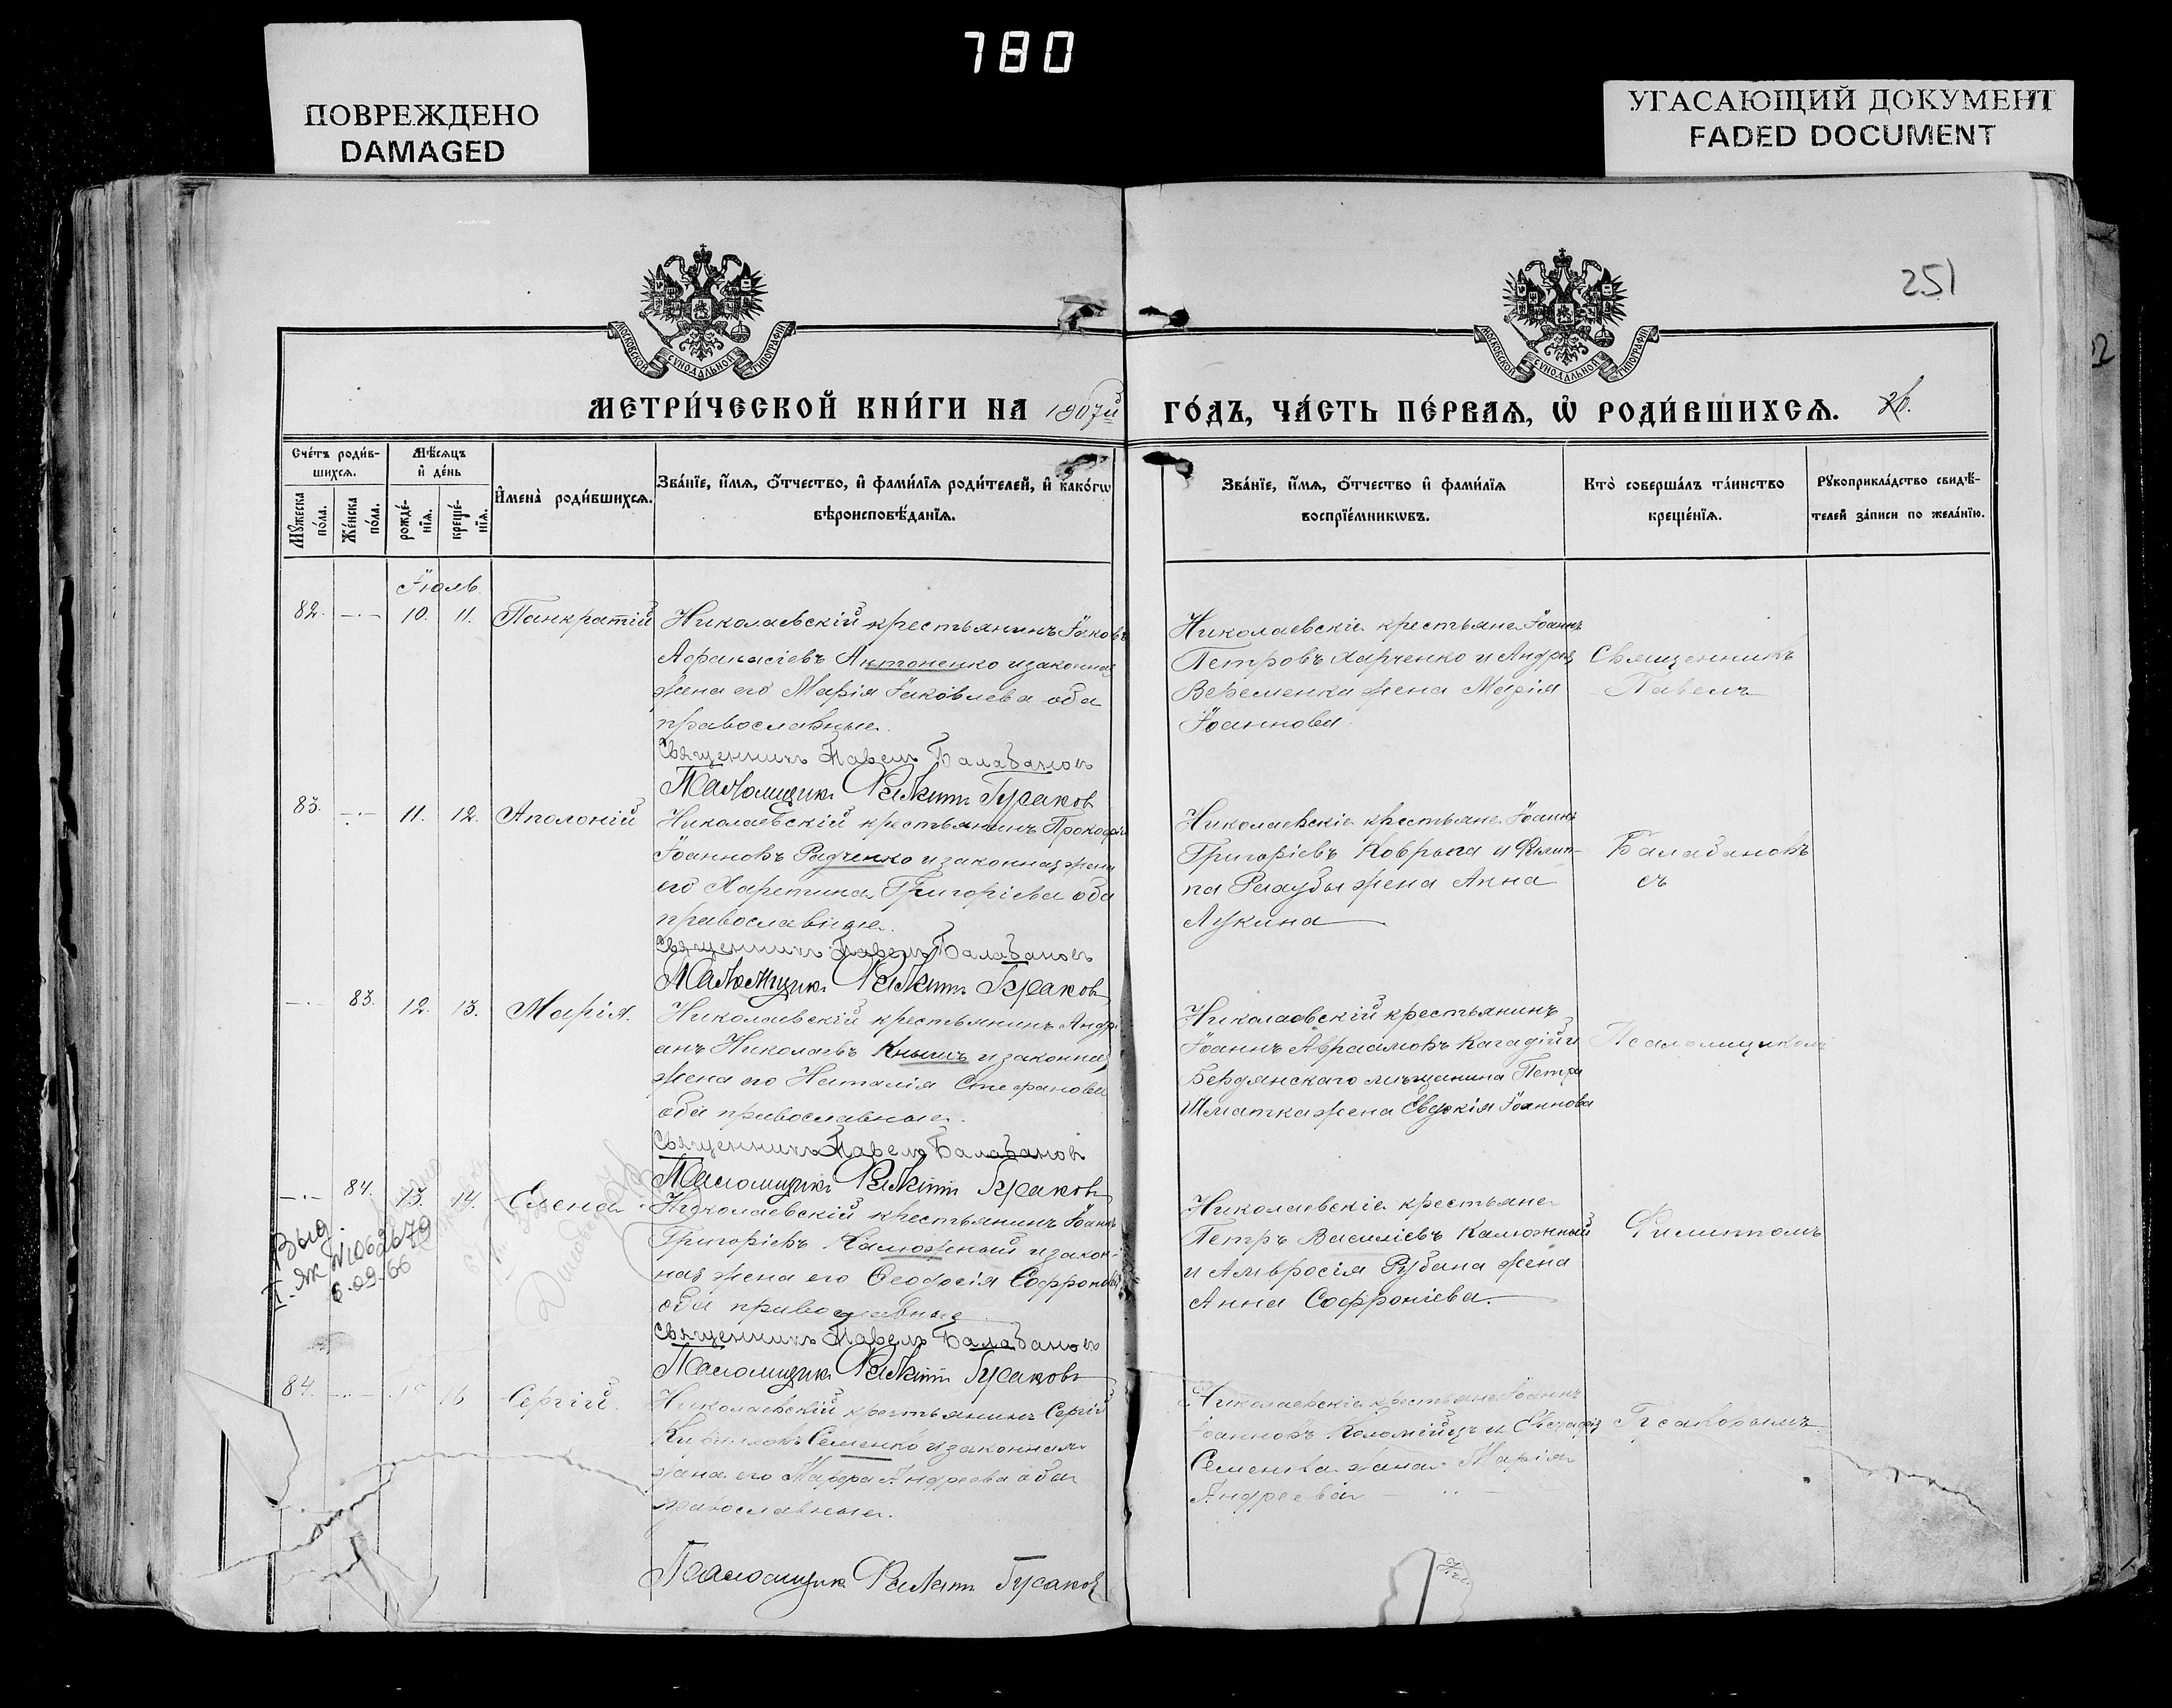 780
ПОВРЕЖДЕНО
DAMAGED
УГАСАЮЩИЙ ДОКУМЕНТ
FADED DOCUMENT
251
МОСКОВСКОЙ СУНОДАЛЬНОЙ ТИПОГРАФІИ
МОСКОВСКОЙ СУНОДАЛЬНОЙ ТИПОГРАФІИ
МЕТРИ́ЧЕСКОЙ КНИ́ГИ НА 1907й
ГО́ДЪ, ЧА́СТЬ ПЕ́РВАѦ, Ѽ РОДИ́ВШИХСѦ. 26.
Сче́тъ роди́в-
шихсѧ.
Мѣ́сѧцъ
и҆ де́нь
Мꙋ́жеска
по́ла.
Же́нска
по́ла.
рожде́-
нїѧ.
креще́-
нїѧ.
И҆мена̀ роди́вшихсѧ.
Зва́нїе, и҆́мѧ, ѻ҆́тчество, и҆ фами́лїѧ роди́телей, и҆ како́гѡ
вѣроисповѣ́данїѧ.
Зва́нїе, и҆́мѧ, ѻ҆́тчество и҆ фами́лїѧ
воспрїе́мникѡвъ.
Кто̀ соверша́лъ та́инство
креще́нїѧ.
Рꙋкоприкла́дство свидѣ́-
телей за́писи по жела́нїю.
Іюль
82. 10. 11. Панкратій
Николаевскій крестьянинъ Іаковъ
Афанасіевъ Антоненко и законная
жена его Марія Іаковлева оба
православные.
Священникъ Павелъ Балабановъ
Псаломщикъ Филиппъ Гусаковъ
Николаевскіе крестьяне Іоаннъ
Петровъ Харченко и Андрея
Веременка жена Марія
Іоаннова
Священникъ
Павелъ
83. 11. 12. Аполоній
Николаевскій крестьянинъ Прокофій
Іоанновъ Радченко и законная жена
его Харитина Григоріева оба
православные.
Священникъ Павелъ Балабановъ
Псаломщикъ Филиппъ Гусаковъ
Николаевскіе крестьяне Іоаннъ
Григоріевъ Коврыга и Филип-
па жена Анна
Лукина
Балабановъ
съ
83. 12. 13. Марія.
Николаевскій крестьянинъ Андрі-
анъ Николаевъ Книшъ и законная
жена его Наталія Стефанова
оба православные.
Священникъ Павелъ Балабановъ
Псаломщикъ Филиппъ Гусаковъ
Николаевскій крестьянинъ
Іоаннъ Авраамовъ Кагадій и
Бердянскаго мѣщанина Петра
Шматка жена Евдокія Іоаннова
Псаломщикомъ
84. 13. 14. Елена
Николаевскій крестьянинъ Іоаннъ
Григоріевъ Калюжный и закон-
ная жена его Ѳеодосія Софроніева
оба православные
Священникъ Павелъ Балабановъ
Псаломщикъ Филиппъ Гусаковъ
Николаевскіе крестьяне
Петръ Василіевъ Калюжный
и Амвросія Рубана жена
Анна Софроніева.
Филиппомъ
Выд.
I-ЯК №1062679
6.09.66
84. 15 16 Сергій.
Николаевскій крестьянинъ Сергій
Кирилловъ Семенко и законная
жена его Марфа Андреева оба
православные.
Псаломщикъ Филиппъ Гусаковъ
Николаевскіе крестьяне Іоаннъ
Іоанновъ Коломійцъ и Евстафія
Семенка жена Марія
Андреева
Гусаковымъ